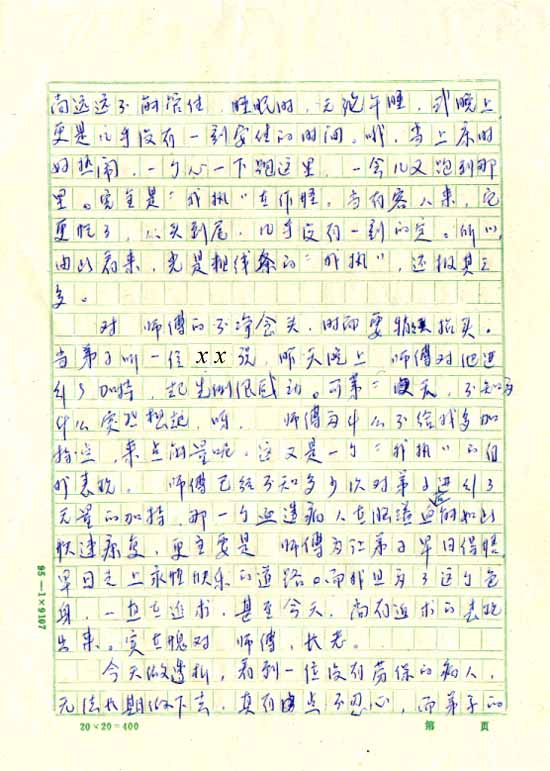 尚远远不能管住，睡眠时，无论午睡，或晚上
更是几乎没有一刻安住的时间。哦，当上床时
好热闹，一个心一下跑这里，一会儿又跑到那
里。完全是“我执”在作怪，当有客人来，它
更忙了，从头到尾，几乎没有一刻的定。所以
由此看来，光是粗线条的“我执”，还极其之
多。
对 师傅的不净念头，时而要 抬头。
当弟子听一位xx说，昨天晚上 师傅对他进
行了加持，起先倒很感动。可第二天，不知为
什么突然想起，呀， 师傅为什么不给我多加
持些，来点能量呢，这又是一个“我执”的自
我表现。 师傅已经不知多少次对弟子进行了
无量的加持，那一个血透病人在临透 能如此
快速康复，更主要是 师傅为让弟子早日得悟，
早日走上永恒快乐的道路。而我且为了这个色
身，一直在追求，甚至今天，尚有追求的表现
出来。实在愧对 师傅，长老。
今天做透析，看到一位没有劳保的病人，
无法长期做下去，真有点不忍心，而弟子的
95—1×9107
20×20=400 第 页